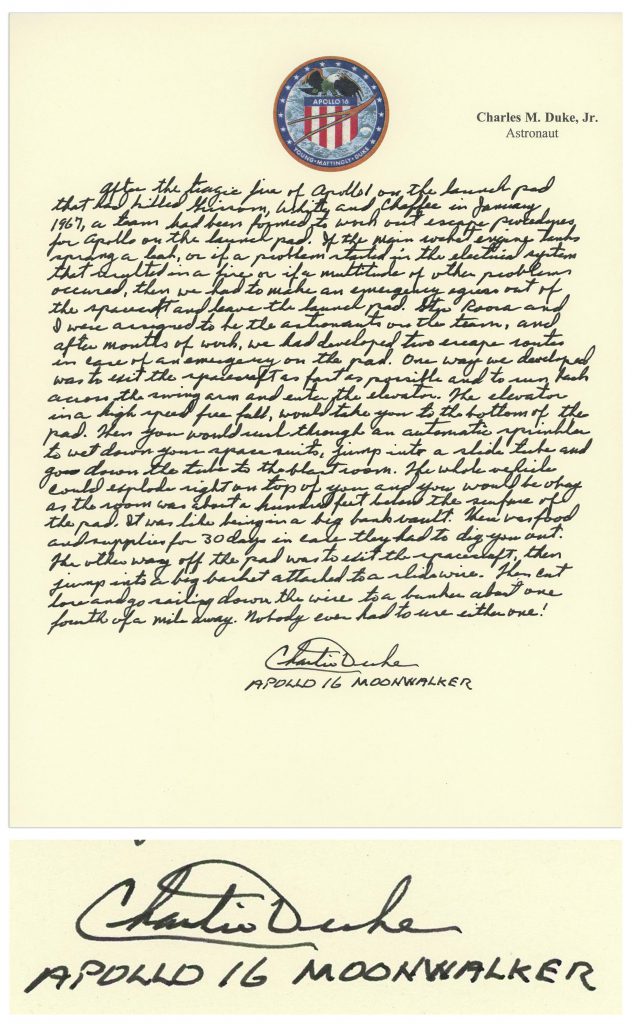 APOLLO 16
YOUNG • MATTINGLY • DUKE
Charles M. Duke, Jr.
Astronaut
After the tragic fire of Apollo 1 on the launch pad
that had killed Grissom, White and Chaffee in January
1967, a team had been formed to work out escape procedures
for Apollo on the launch pad. If the main engine tanks
sprang a leak, or if a problem started in the electrical system
that resulted in a fire or if a multitude of other problems
occured, then we had to make an emergency egress out of
the spacecraft and leave the launch pad. Stu Roosa and
I were assigned to be the astronauts on the team, and
after months of work, we had developed two escape routes
in case of an emergency on the pad. One way we developed
was to exit the spacecraft as fast as possible and to run back
across the swing arm and enter the elevator. The elevator
in a high speed free fall, would take you to the bottom of the
pad. Then you would rush through an automatic sprinkler
to wet down your space suits, jump into a slide tube and
go down the tube to the blast room. The whole vehicle
could explode right on top of you and you would be okay
as the room was about a hundred feet below the surface of
the pad. It was like being in a big bank vault. There was food
and supplies for 30 days in case they had to dig you out.
The other way off the pad was to exit the spacecraft, then
jump into a big basket attached to a slide wire. Then cut
lose and go sailing down the wire to a bunker about one
fourth of a mile away. Nobody ever had to use either one!
Charlie Duke
APOLLO 16 MOONWALKER
Charlie Duke
APOLLO 16 MOONWALKER